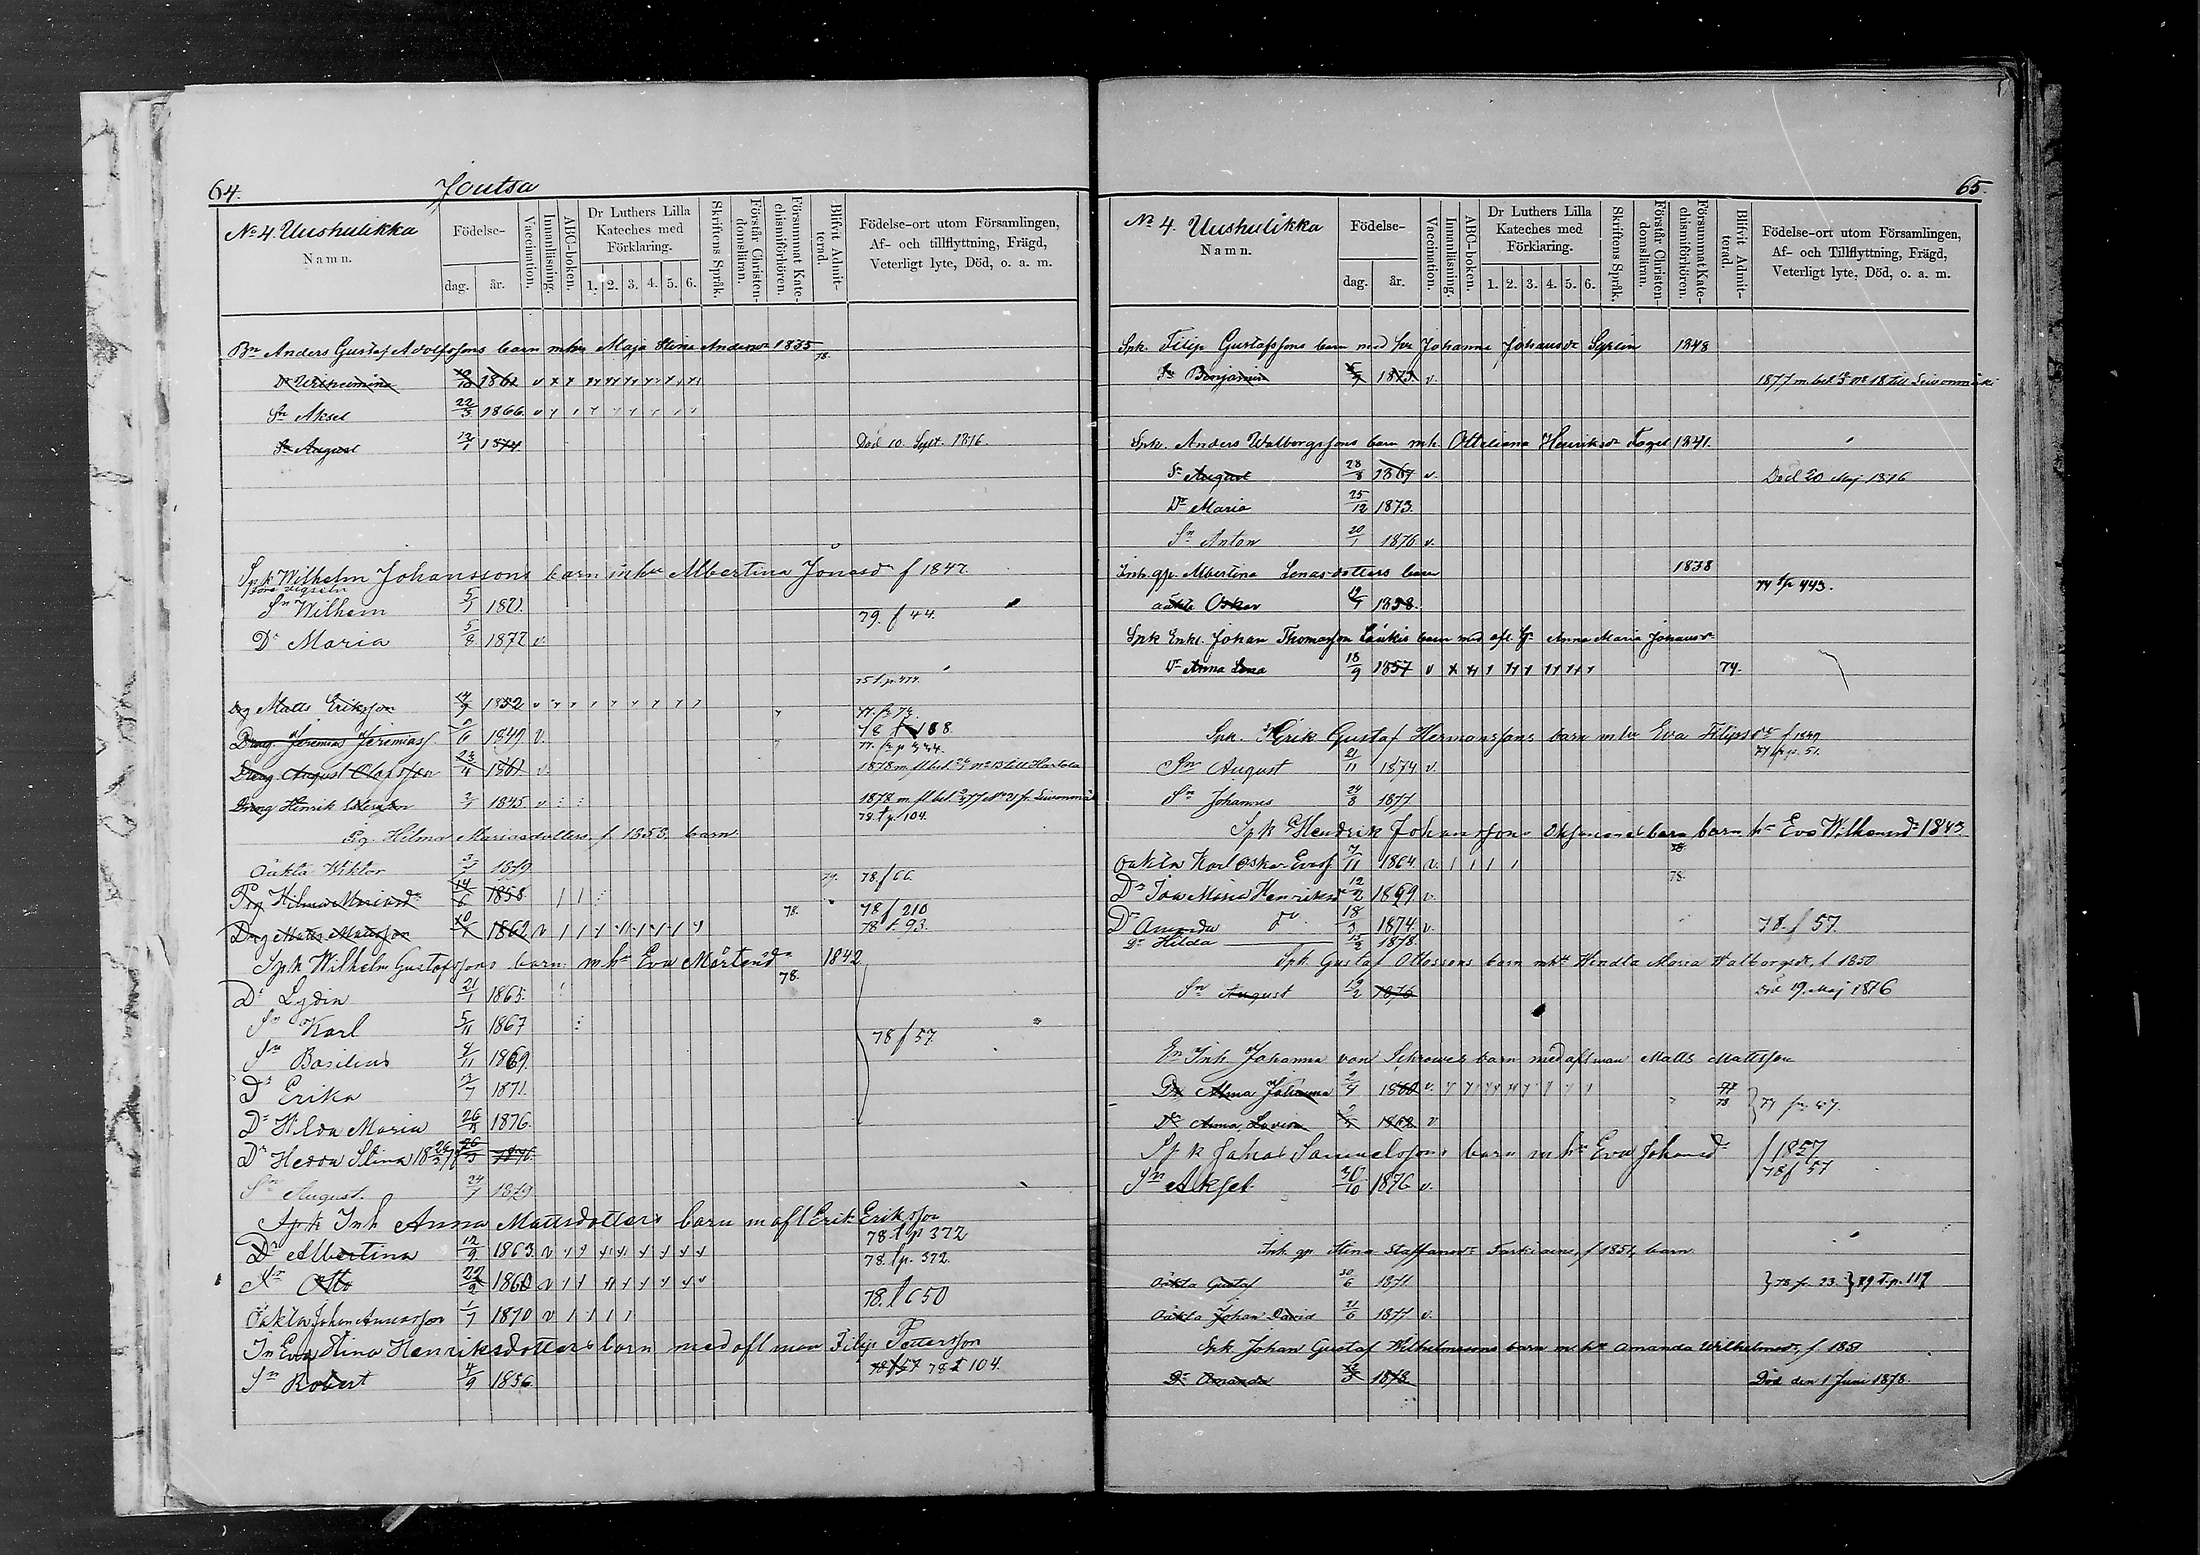 64.
Joutsa
No 4. Uushulikka
Namn.
Födelse-
dag.
år.
Vaccination.
Innanläsning.
ABC-boken.
Dr Luthers Lilla Kateches med Förklaring.
1. 2. 3. 4. 5. 6.
Skriftens Språk.
Förstår Christendomsläran.
Försummat Katechismiförhören.
Blifvit Admitterad.
Födelse-ort utom Församlingen,
Af- och tillflyttning, Frägd,
Veterligt lyte, Död, o. a. m.
Bn Anders Gustaf Adolfssons barn m hu Maja Stina Andersdr 1835
Dr Wilhelmina 1861 v
Sn Aksel 22/3 1866 v
Sn August 1874 Död 10 Sept. 1876
Spk Wilhelm Johanssons barn m hu Albertina Jonasdr f 1847
Sn Wilhem 5/1 1871 79. f 44.
Dr Maria 5/8 1872 v.
Drg Matts Eriksson 1852 v
Dreng. Jeremias Jeremiass. 1849 v.
Dreng August Olofsson 23/4 1861 v.
Dreng Henrik 1845 v
78. f p 104.
Pig. Hilma Mariasdotters f. 1853 barn
Oäkta Wiktor 1879 78. f 66.
Pig Hilma Mariasdr 14/6 1858
78 f 210
Drg Matts Mattsson 1862 v 78. 78 f. 93.
Spk Wilhelm Gustafssons barn m hu Eva Mårtensdr 1842
78.
Dr Lydia 21/1 1865
Sn Karl 5/11 1867 78 f 57.
Sn Basilius 4/11 1869.
Dr Erika 13/7 1871.
Dr Hilda Maria 1876.
Dr Hedda Stina
Sn August. 24/7 1879
Spk Inh Anna Mattsdotters barn m afl Erik Eriksson
78. f p 372
Dr Albertina 12/9 1863 v
78. f p. 372.
Sn Otto 1860 v
78. f 650
Oäkta Johan Annasson 1/7 1870 v
In Eva Stina Henriksdotters barn med afl man Filip Pettersson
Sn Robert 4/9 1856 78 f 57 78 f 104.
65.
No 4 Uushulikka
Namn.
Födelse-
dag.
år.
Vaccination.
Innanläsning.
ABC-boken.
Dr Luthers Lilla Kateches med Förklaring.
1. 2. 3. 4. 5. 6.
Skriftens Språk.
Förstår Christendomsläran.
Försummat Katechismiförhören.
Blifvit Admitterad.
Födelse-ort utom Församlingen,
Af- och Tillflyttning, Frägd,
Veterligt lyte, Död, o. a. m.
Spk. Filip Gustafssons barn med hu Johanna Johansdr 1848
Sn Benjamin 1873 v. 1877 m. bet. No 18 till Leivonmäki
Spk. Anders Walborgssons barn m h. Ottiliana Henriksdr 1841.
Sn August 28/8 1867 v. Död 20 Maj 1876
Dr Maria 25/12 1873.
Sn Anton 20/1 1876 v.
Inh. qp. Albertina Lenasdotters barn 1838
oäkta Oskar 1858. 77 f p 443.
Spk Enkl. Johan Thomasson barn med afl. h. Anna Maria Johansdr
Dr Anna Lena 18/9 1857 v 74.
Spk. Erik Gustaf Hermanssons barn m hu Eva Filipsdr f 1849
77 f p. 51.
Sn August 21/11 1874 v.
Sn Johannes 24/8 1877
Spk Hendrik Johanssons barn hu Eva Wilhemsdr 1843.
oäkta Karl Oskar Evass 7/11 1864. v.
78.
Dr Ida Maria Henriksdr 12/2 1869 v.
Dr Amanda do 18/3 1874. v. 78. f 57.
Dr Hilda 15/2 1878.
Spk. Gustaf Ottossons barn m h Hedda Maria Walborgsdr, f 1850
Sn August 19/2 1876 Död 19. Maj 1876
En Inh Johanna von barn med afl man Matts Mattsson
Dr Alma Johanna 1860 v.
Dr Anna Lovisa 1862 v
Spk Johan Samuelssons barn m hu Eva Johansdr f 1857
78 f 57
Sn Aksel. 31/10 1876 v.
Inh qp Stina Staffansdr f. 1851, barn
oäkta Gustaf 30/6 1871 } 78 f. 23. } 79 f. p. 117
oäkta Johan David 21/6 1877 v.
Spk Johan Gustaf Wilhelmssons barn m hu Amanda Wilhelmsdr, f 1851
Dr Amanda 1878 Död den 1 Juni 1878.